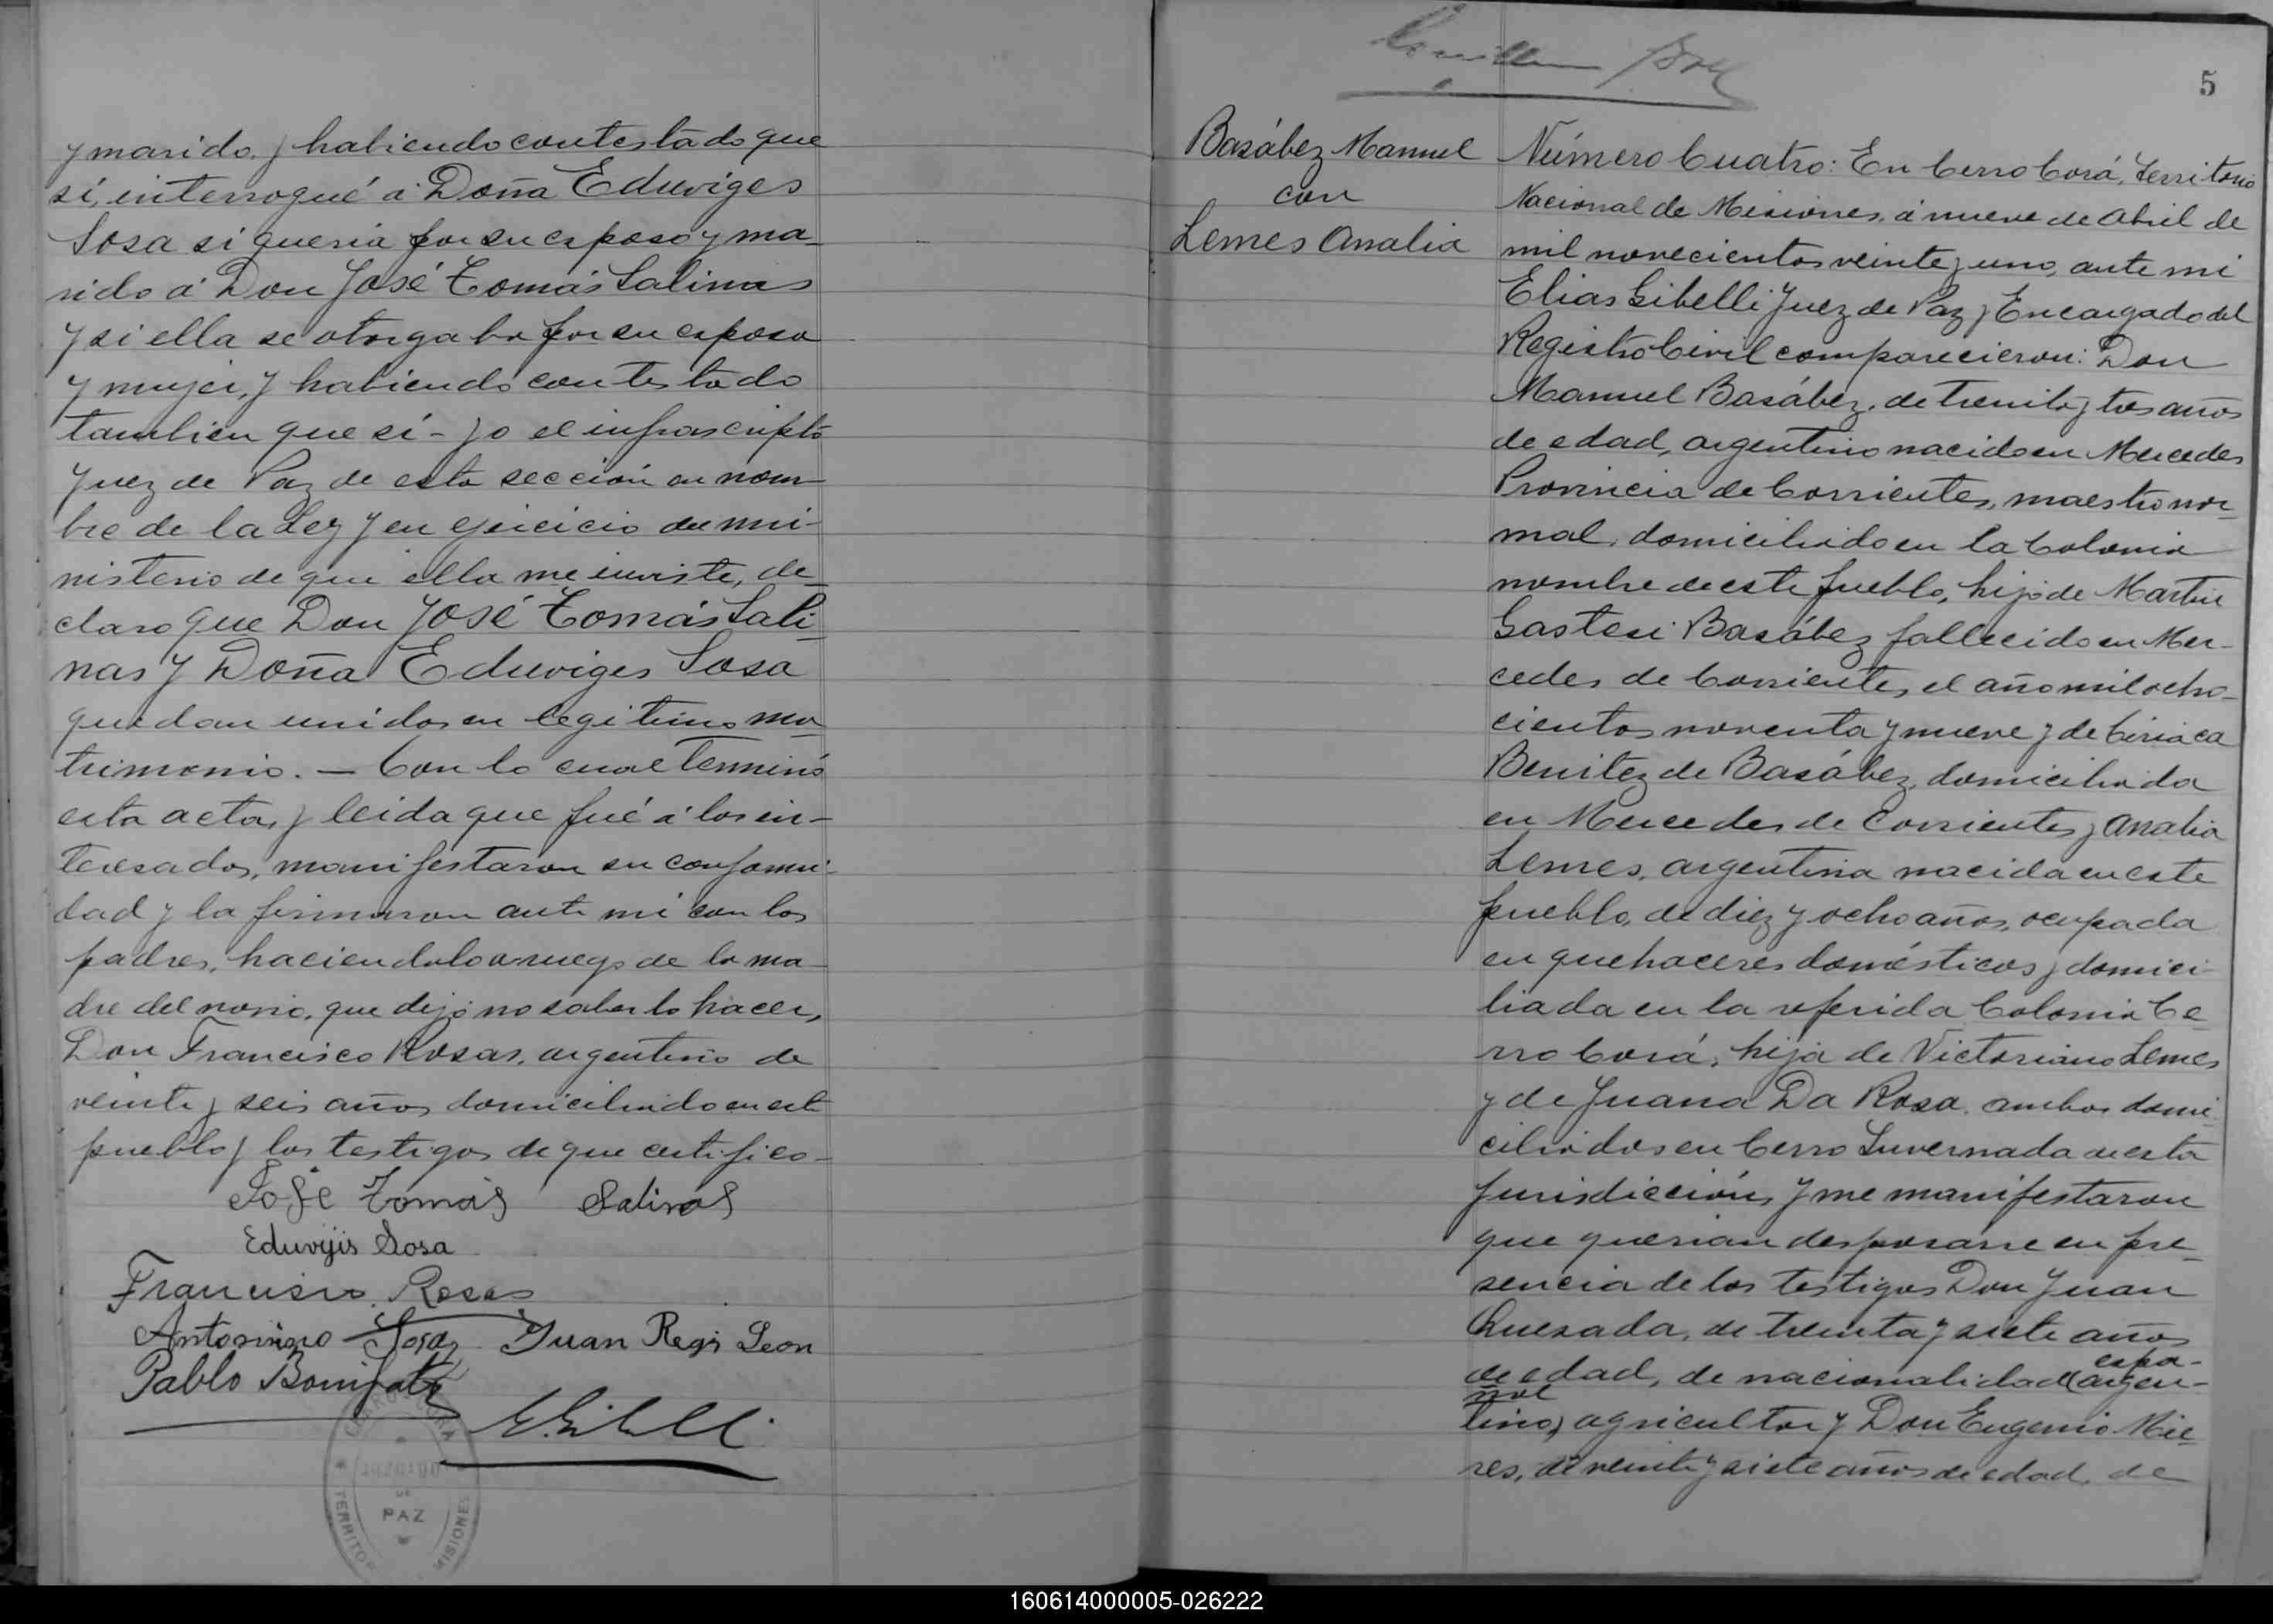 y marido, y habiendo contestado que
sí, interrogué á Doña Eduviges
Sosa si queria por su esposo y ma-
rido á Don José Tomás Salinas
y si ella se otorgaba por su esposa
y mujer, y habiendo contestado
tambien que sí - yo el infrascripto
Juez de Paz de esta sección en nom-
bre de la Ley y en ejercicio del mi-
nisterio de que ella me inviste, de-
claro que Don José Tomás Sali-
nas y Doña Eduviges Sosa
quedan unidos en legitimo ma-
trimonio. — Con lo cual terminó
esta acta, y leida que fué á los in-
teresados, manifestaron su conformi-
dad y la firmaron ante mi con los
padres, haciendolo a ruego de la ma-
dre del novio, que dijo no saberlo hacer,
Don Francisco Rosas, argentino de
veinte y seis años domiciliado en este
pueblo y los testigos de que certifico -
José Tomás Salinas
Eduvijis Sosa
Francisco Rosas
Antonino Sosa Juan Regis Leon
Pablo Bonifato
E. Gibelli
CERRO CORÁ
JUZGADO
DE
PAZ
TERRITORIO MISIONES
5
Basábez Manuel
con
Lemes Analia
Número Cuatro: En Cerro Corá, Territorio
Nacional de Misiones, á nueve de Abril de
mil novecientos veinte y uno, ante mi
Elias Gibelli Juez de Paz y Encargado del
Registro Civil comparecieron: Don
Manuel Basábez, de treinta y tres años
de edad, argentino nacido en Mercedes
Provincia de Corrientes, maestro nor-
mal, domiciliado en la Colonia
nombre de este pueblo, hijo de Martin
Gastesi Basábez fallecido en Mer-
cedes de Corrientes, el año mil ocho-
cientos noventa y nueve y de Ciriaca
Benitez de Basábez, domiciliada
en Mercedes de Corrientes y Analia
Lemes, argentina nacida en este
pueblo, de diez y ocho años, ocupada
en quehaceres domésticos y domici-
liada en la referida Colonia Ce-
rro Corá, hija de Victoriano Lemes
y de Juana Da Rosa, ambos domi-
ciliados en Cerro Invernada de esta
Jurisdicción, y me manifestaron
que querian desposarse en pre-
sencia de los testigos Don Juan
Quesada, de treinta y siete años
espa-
de edad, de nacionalidad (argen-
ñol
tino) agricultor y Don Eugenio Mie-
res, de veinte y siete años de edad, de
160614000005-026222